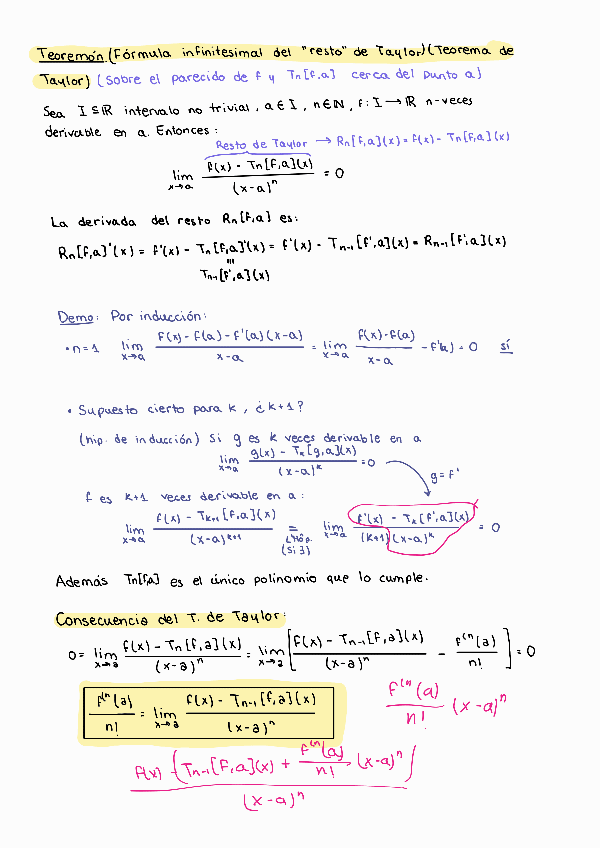 Teoremón (Fórmula infinitesimal del "resto" de Taylor) (Teorema de
Taylor) (sobre el parecido de f y Tn[f,a] cerca del punto a)
Sea I ⊆ ℝ intervalo no trivial, a ∈ I, n ∈ ℕ, f: I → ℝ n-veces
derivable en a. Entonces:
Resto de Taylor → Rn[f,a](x) = f(x) - Tn[f,a](x)
lim x→a (f(x) - Tn[f,a](x)) / (x-a)^n = 0
La derivada del resto Rn[f,a] es:
Rn[f,a]'(x) = f'(x) - Tn[f,a]'(x) = f'(x) - Tn-1[f',a](x) = Rn-1[f',a](x)
Tn-1[f',a](x)
Demo: Por inducción:
• n=1 lim x→a (f(x) - f(a) - f'(a)(x-a)) / (x-a) = lim x→a (f(x) - f(a)) / (x-a) - f'(a) = 0 sí
• Supuesto cierto para k, ¿k+1?
(hip. de inducción) Si g es k veces derivable en a
lim x→a (g(x) - Tk[g,a](x)) / (x-a)^k = 0 g = f'
f es k+1 veces derivable en a:
lim x→a (f(x) - Tk+1[f,a](x)) / (x-a)^k+1 = L'Hôp. (si ∃) lim x→a (f'(x) - Tk[f',a](x)) / ((k+1)(x-a)^k) = 0
Además Tn[f,a] es el único polinomio que lo cumple.
Consecuencia del T. de Taylor:
0 = lim x→a (f(x) - Tn[f,a](x)) / (x-a)^n = lim x→a [(f(x) - Tn-1[f,a](x)) / (x-a)^n - f^(n(a) / n!] = 0
f^(n(a) / n! = lim x→a (f(x) - Tn-1[f,a](x)) / (x-a)^n
f^(n(a) / n! (x-a)^n
f(x) - (Tn-1[f,a](x) + f^(n(a) / n! · (x-a)^n)
(x-a)^n